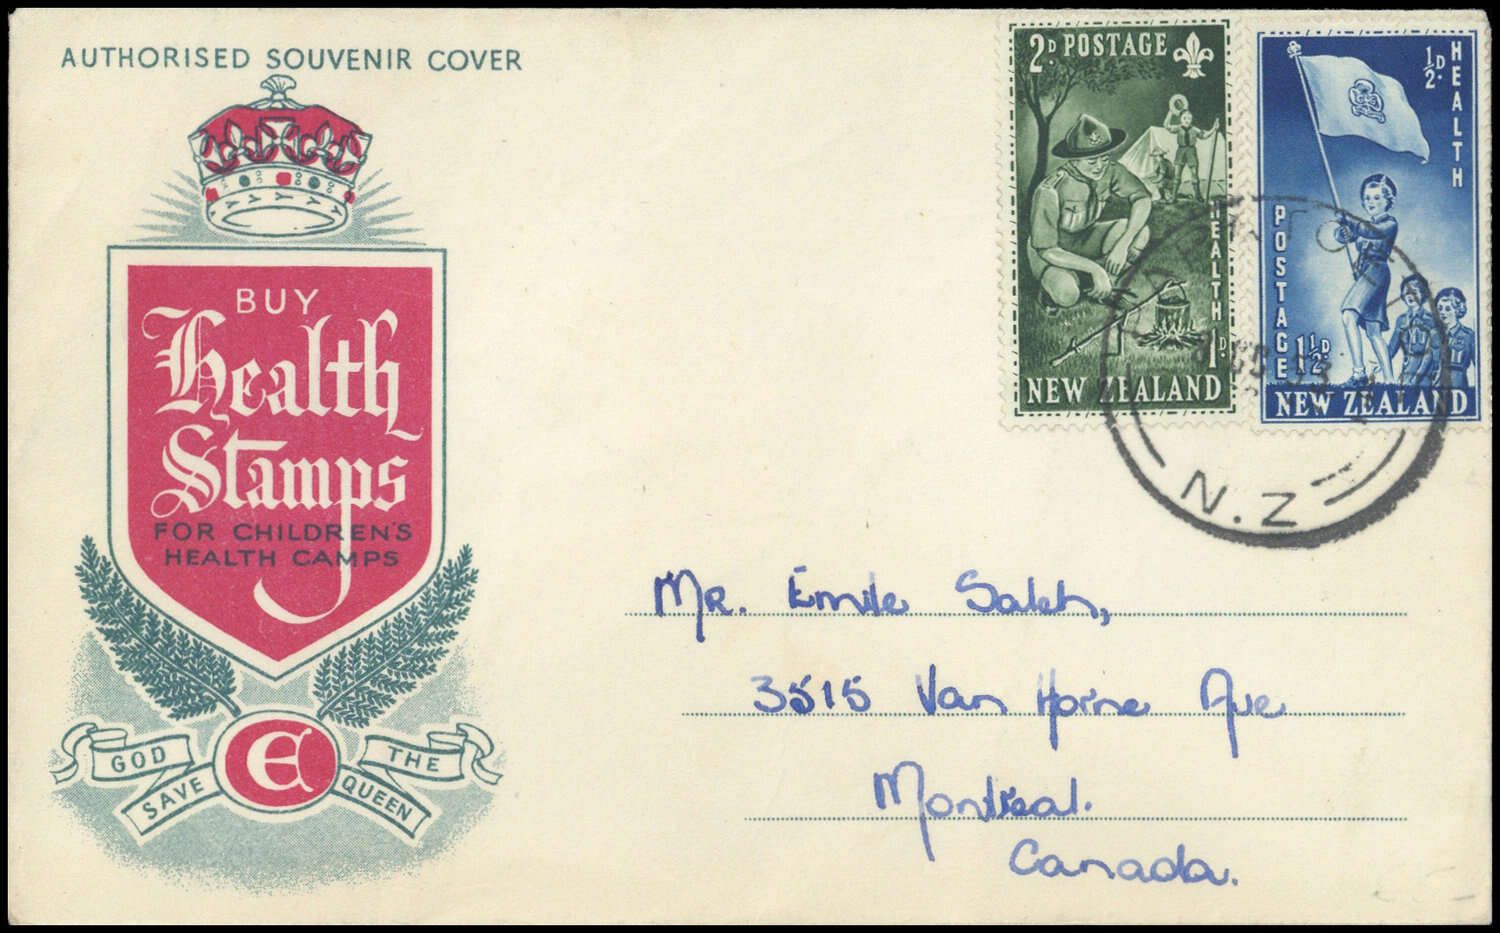 AUTHORISED SOUVENIR COVER
BUY
Health
Stamps
FOR CHILDREN'S
HEALTH CAMPS
GOD SAVE THE QUEEN
E
2D POSTAGE
HEALTH
1D
NEW ZEALAND
½D
HEALTH
POSTAGE
1½D
NEW ZEALAND
N.Z
Mr. Emile Saleh,
3515 Van Horne Ave
Montreal.
Canada.